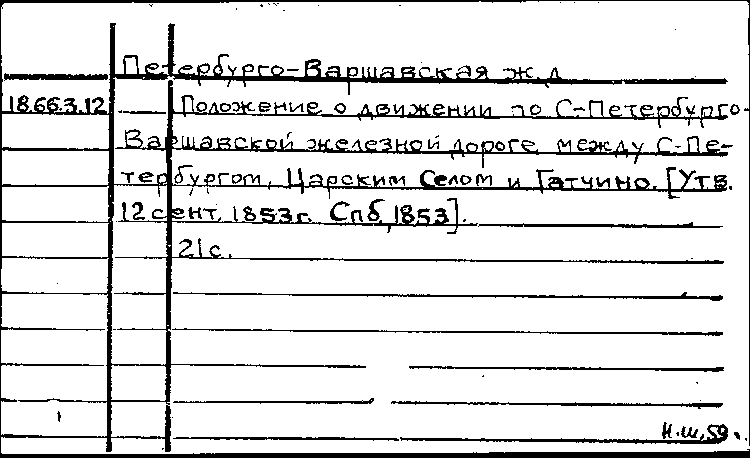 Петербурго-Варшавская ж.д
18.66.3.12 Положение о движении по С-Петербурго-
Варшавской железной дороге между С-Пе-
тербургом, Царским Селом и Гатчино. [Утв.
12 сент. 1853г. Спб, 1853].
21с.
Н.Ш, 59.